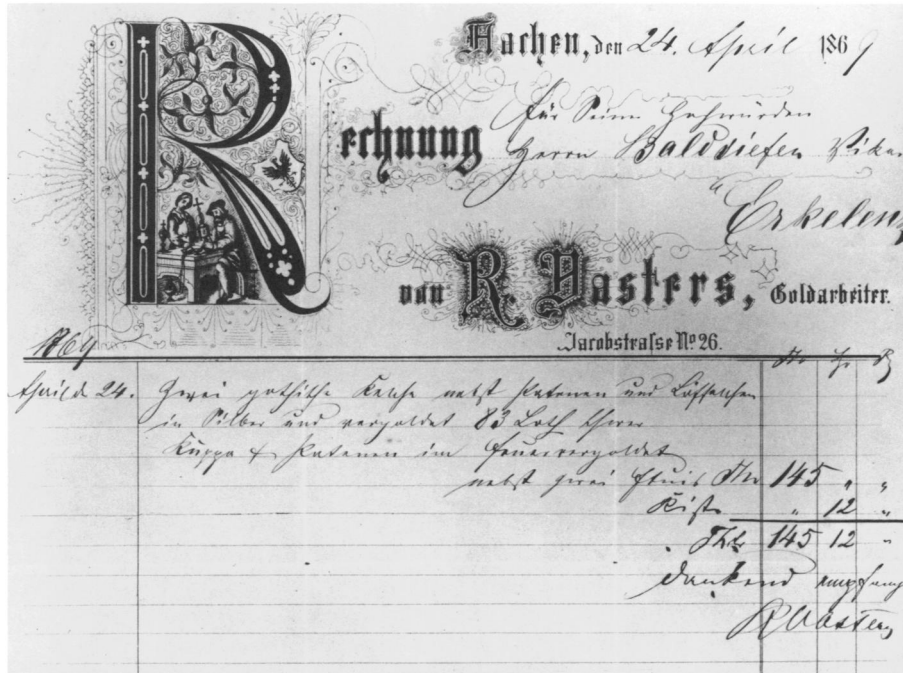 Aachen, den 24. April 1869
Rechnung
für Seine Hochwürden
Herrn Baldsiefen Vikar
Erkelenz
von R. Vasters, Goldarbeiter.
Jacobstrasse No 26.
1869
April d. 24. Zwei gothische Kelche nebst Patenen und Löffelchen
in Silber und vergoldet 83 Loth schwer
Kuppa & Patenen im Feuer vergoldet
nebst zwei Etuis Thr 145 " "
Kiste " 12 "
Thlr 145 12 "
dankend empfang
RVasters